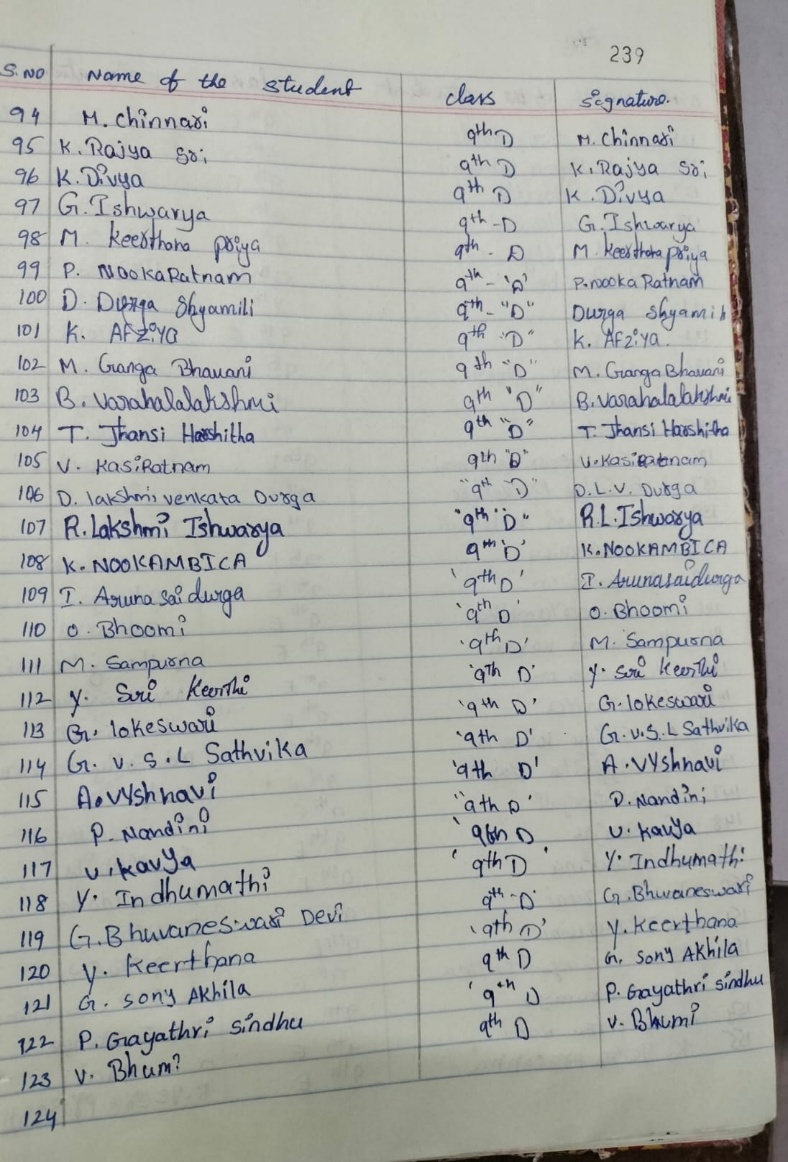 239
S.NO Name of the student class signature.
94 M. Chinnari 9th D M. Chinnari
95 K. Rajya Sri 9th D K. Rajya Sri
96 K. Divya 9th D K. Divya
97 G. Ishwarya 9th - D G. Ishwarya
98 M. keerthana priya 9th - D M. keerthana priya
99 P. NOOKaRatnam 9th - 'D' P. nooka Ratnam
100 D. Durga Shyamili 9th - "D" Durga Shyamili
101 K. AFziya 9th "D" K. AFziya.
102 M. Ganga Bhavani 9th "D" M. Ganga Bhavani
103 B. Varahalalakshmi 9th "D" B. Varahalalakshmi
104 T. Jhansi Harshitha 9th "D" T. Jhansi Harshitha
105 V. KasiRatnam 9th "D" V. KasiRatnam
106 D. lakshmi venkata Durga "9th "D" D.L.V. Durga
107 R. Lakshmi Ishwarya "9th "D" R.L. Ishwarya
108 K. NOOKAMBICA 9th 'D' K. NOOKAMBICA
109 I. Aruna sai durga '9th D' I. Arunasaidurga
110 O. Bhoomi '9th D' O. Bhoomi
111 M. Sampurna '9th D' M. Sampurna
112 Y. Siri Keerthi '9th D' Y. Siri Keerthi
113 G. lokeswari '9th D' G. lokeswari
114 G. V. S. L Sathvika '9th D' G. V. S. L Sathvika
115 A. Vyshnavi '9th D' A. Vyshnavi
116 P. Nandini "9th D' P. Nandini
117 V. kavya '9th D V. kavya
118 Y. Indhumathi '9th D' Y. Indhumathi
119 G. Bhuvaneswari Devi 9th - D' G. Bhvaneswari
120 Y. Keerthana '9th D' Y. Keerthana
121 G. Sony Akhila 9th D G. Sony Akhila
122 P. Gayathri Sindhu '9th D P. Gayathri Sindhu
123 V. Bhumi 9th D V. Bhumi
124